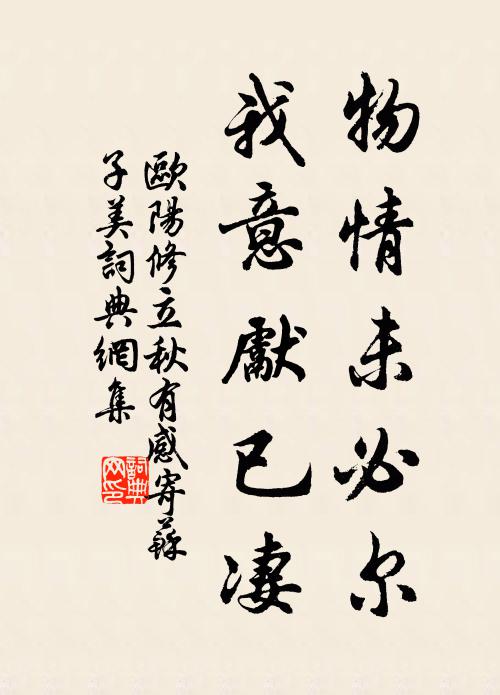 物情未必尔
我意獻已凄
歐陽修立秋有感寄蘇
子美詞典網集
詞典
网印